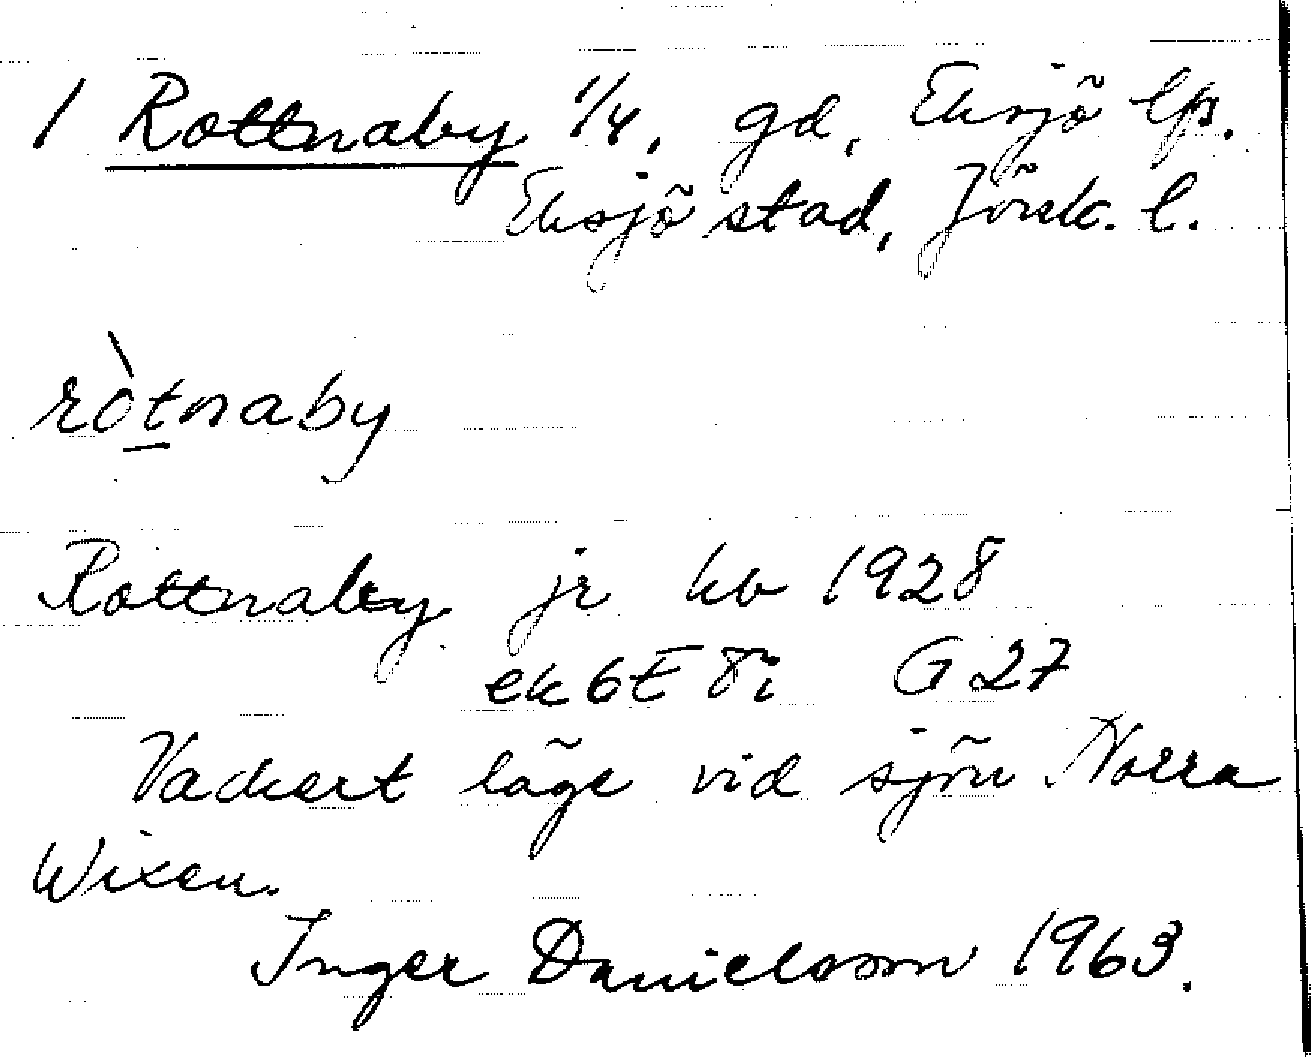 1 Rottnaby 1/4, gd, Eksjö lfs.
Eksjö stad, Jönk. l.
ròtnaby
Rottnaby jr kb 1928
ek 6E 8i G 27
Vackert läge vid sjön Norra
Wixen.
Inger Danielsson 1963.